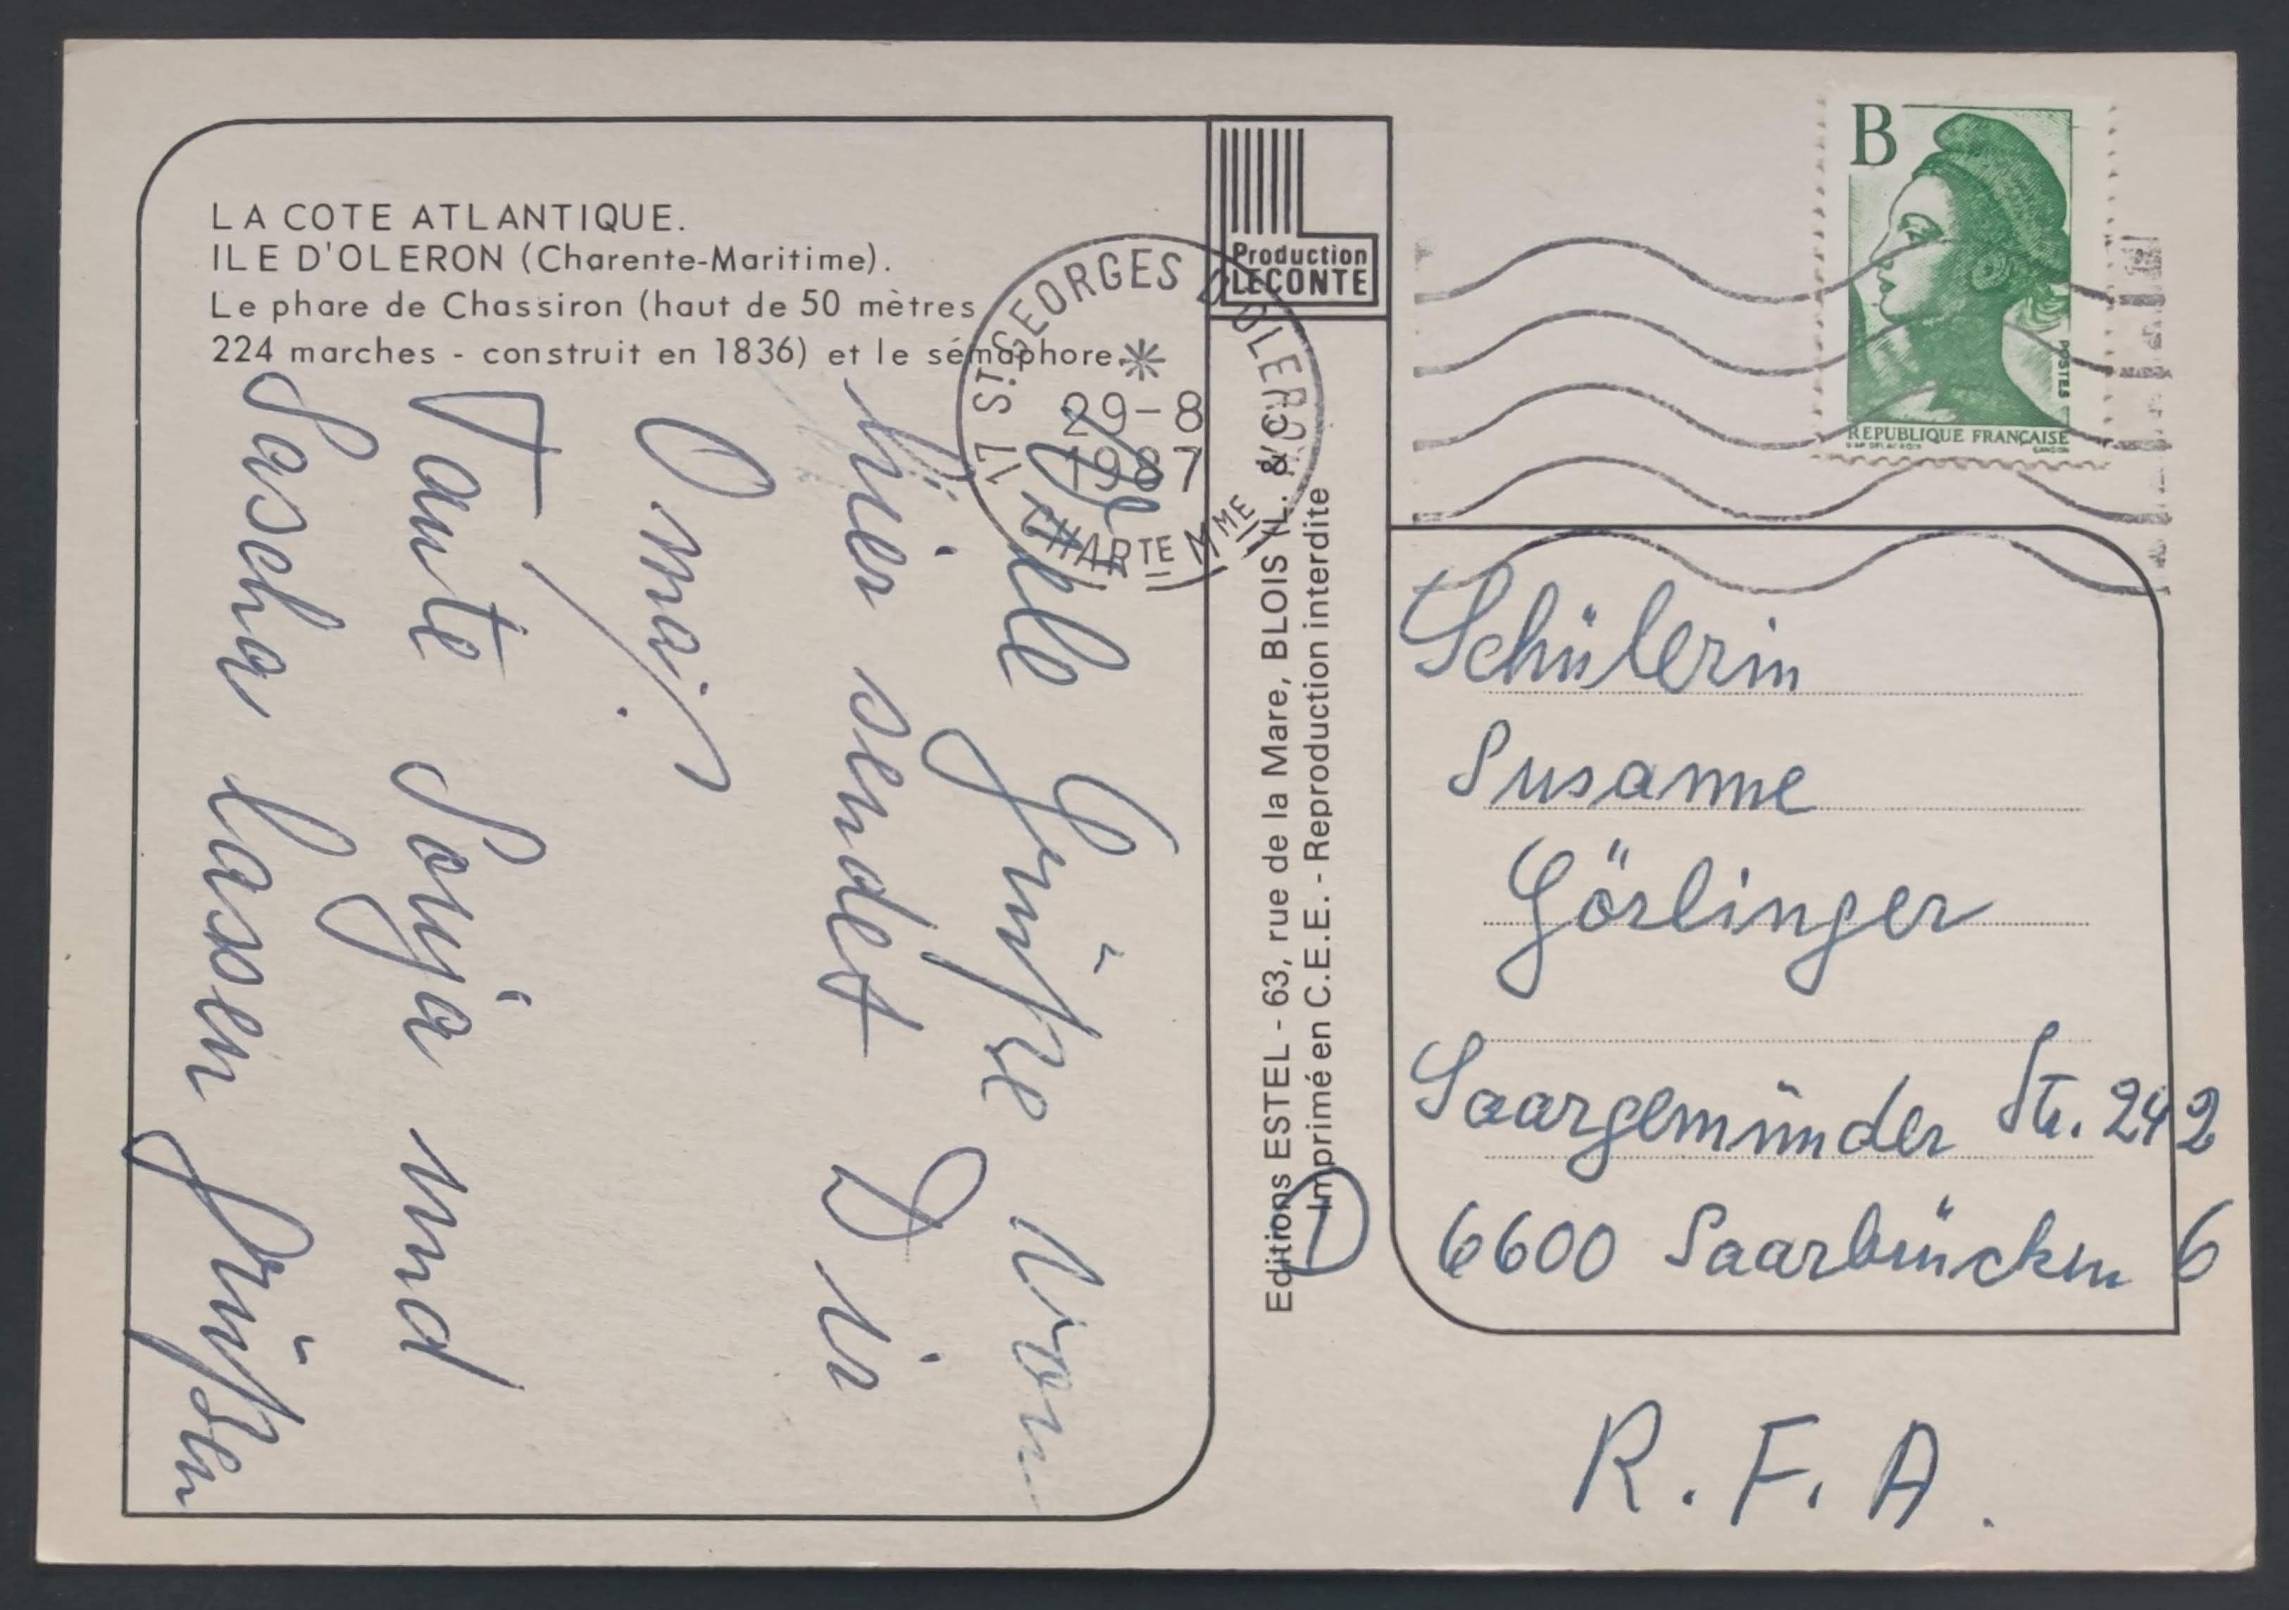 LA COTE ATLANTIQUE.
ILE D'OLERON (Charente-Maritime).
Le phare de Chassiron (haut de 50 mètres
224 marches - construit en 1836) et le sémaphore.
Viele Grüße von
hier sendet Dir
Omaj
Tante Sonja und
Sascha lassen grüßen
17 ST GEORGES D'OLERON
29-8
1987
CHARTE MME
Production
LECONTE
Editions ESTEL - 63, rue de la Mare, BLOIS
Imprimé en C.E.E. - Reproduction interdite
B
POSTES
REPUBLIQUE FRANÇAISE
Schülerin
Susanne
Görlinger
Saargemünder Str. 242
D 6600 Saarbrücken 6
R.F.A.